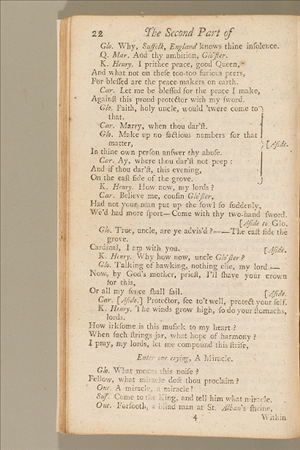 22 The Second Part of
Glo. Why, Suffolk, England knows thine insolence.
Q. Mar. And thy ambition, Glo'ster.
K. Henry. I prithee peace, good Queen,
And whet not on these too-too furious peers,
For blessed are the peace makers on earth.
Car. Let me be blessed for the peace I make,
Against this proud protector with my sword.
Glo. Faith, holy uncle, would 'twere come to
that.
Car. Marry, when thou dar'st.
Glo. Make up no factious numbers for that
matter, [Aside.
In thine own person answer thy abuse.
Car. Ay, where thou dar'st not peep:
And if thou dar'st, this evening,
On the east side of the grove.
K. Henry. How now, my lords?
Car. Believe me, cousin Glo'ster,
Had not your man put up the fowl so suddenly,
We'd had more sport—Come with thy two-hand sword.
[Aside to Glo.
Glo. True, uncle, are ye advis'd?—The east side the
grove.
Cardinal, I am with you. [Aside.
K. Henry. Why how now, uncle Glo'ster?
Glo. Talking of hawking, nothing else, my lord.—
Now, by God's mother, priest, I'll shave your crown
for this,
Or all my fence shall fail. [Aside.
Car. [Aside.] Protector, see to't well, protect your self.
K. Henry. The winds grow high, so do your stomachs,
lords.
How irksome is this musick to my heart?
When such strings jar, what hope of harmony?
I pray, my lords, let me compound this strife,
Enter one crying, A Miracle.
Glo. What means this noise?
Fellow, what miracle dost thou proclaim?
One. A miracle, a miracle!
Suf. Come to the King, and tell him what miracle.
One. Forsooth, a blind man at St. Alban's shrine,
4 Within